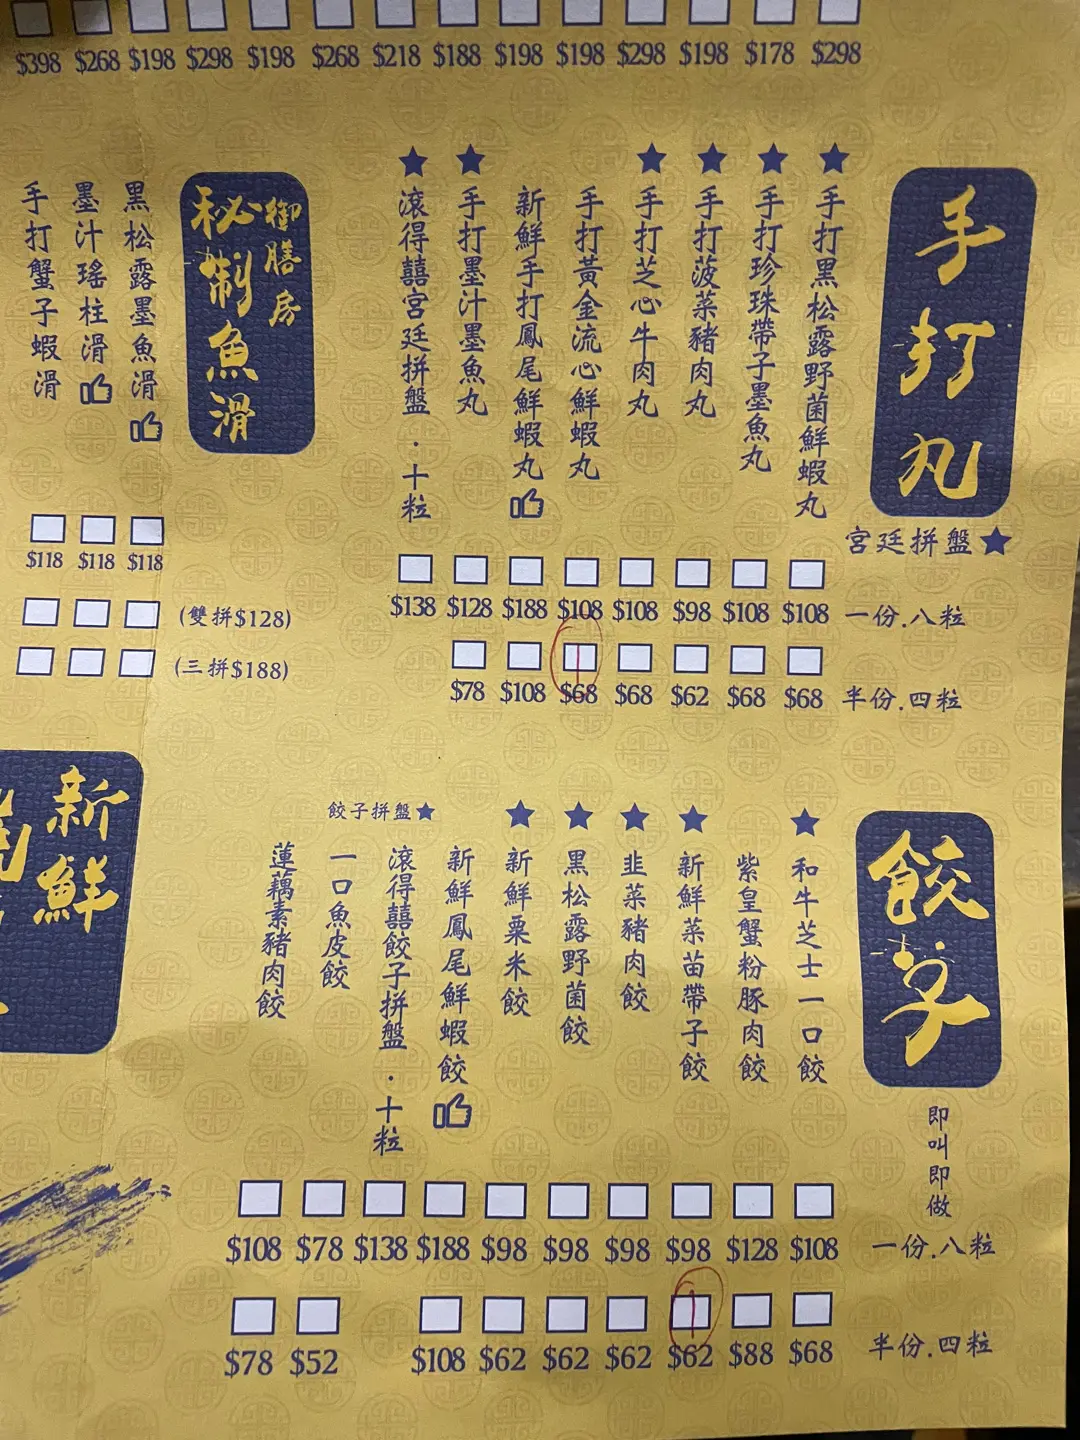 $398 $268 $198 $298 $198 $268 $218 $188 $198 $198 $298 $198 $178 $298
手打丸
宮廷拼盤★
★手打黑松露野菌鮮蝦丸
★手打珍珠帶子墨魚丸
★手打菠菜豬肉丸
★手打芝心牛肉丸
手打黃金流心鮮蝦丸
新鮮手打鳳尾鮮蝦丸
★手打墨汁墨魚丸
★滾得囍宮廷拼盤·十粒
$138 $128 $188 $108 $108 $98 $108 $108 一份.八粒
1
$78 $108 $68 $68 $62 $68 $68 半份.四粒
御膳房
秘制魚滑
黑松露墨魚滑
墨汁瑤柱滑
手打蟹子蝦滑
$118 $118 $118
(雙拼$128)
(三拼$188)
餃子
即叫即做
★和牛芝士一口餃
紫皇蟹粉豚肉餃
★新鮮菜苗帶子餃
★韭菜豬肉餃
★黑松露野菌餃
★新鮮粟米餃
新鮮鳳尾鮮蝦餃
餃子拼盤★
滾得囍餃子拼盤·十粒
一口魚皮餃
蓮藕素豬肉餃
$108 $78 $138 $188 $98 $98 $98 $98 $128 $108 一份.八粒
1
$78 $52 $108 $62 $62 $62 $62 $88 $68 半份.四粒
新鮮